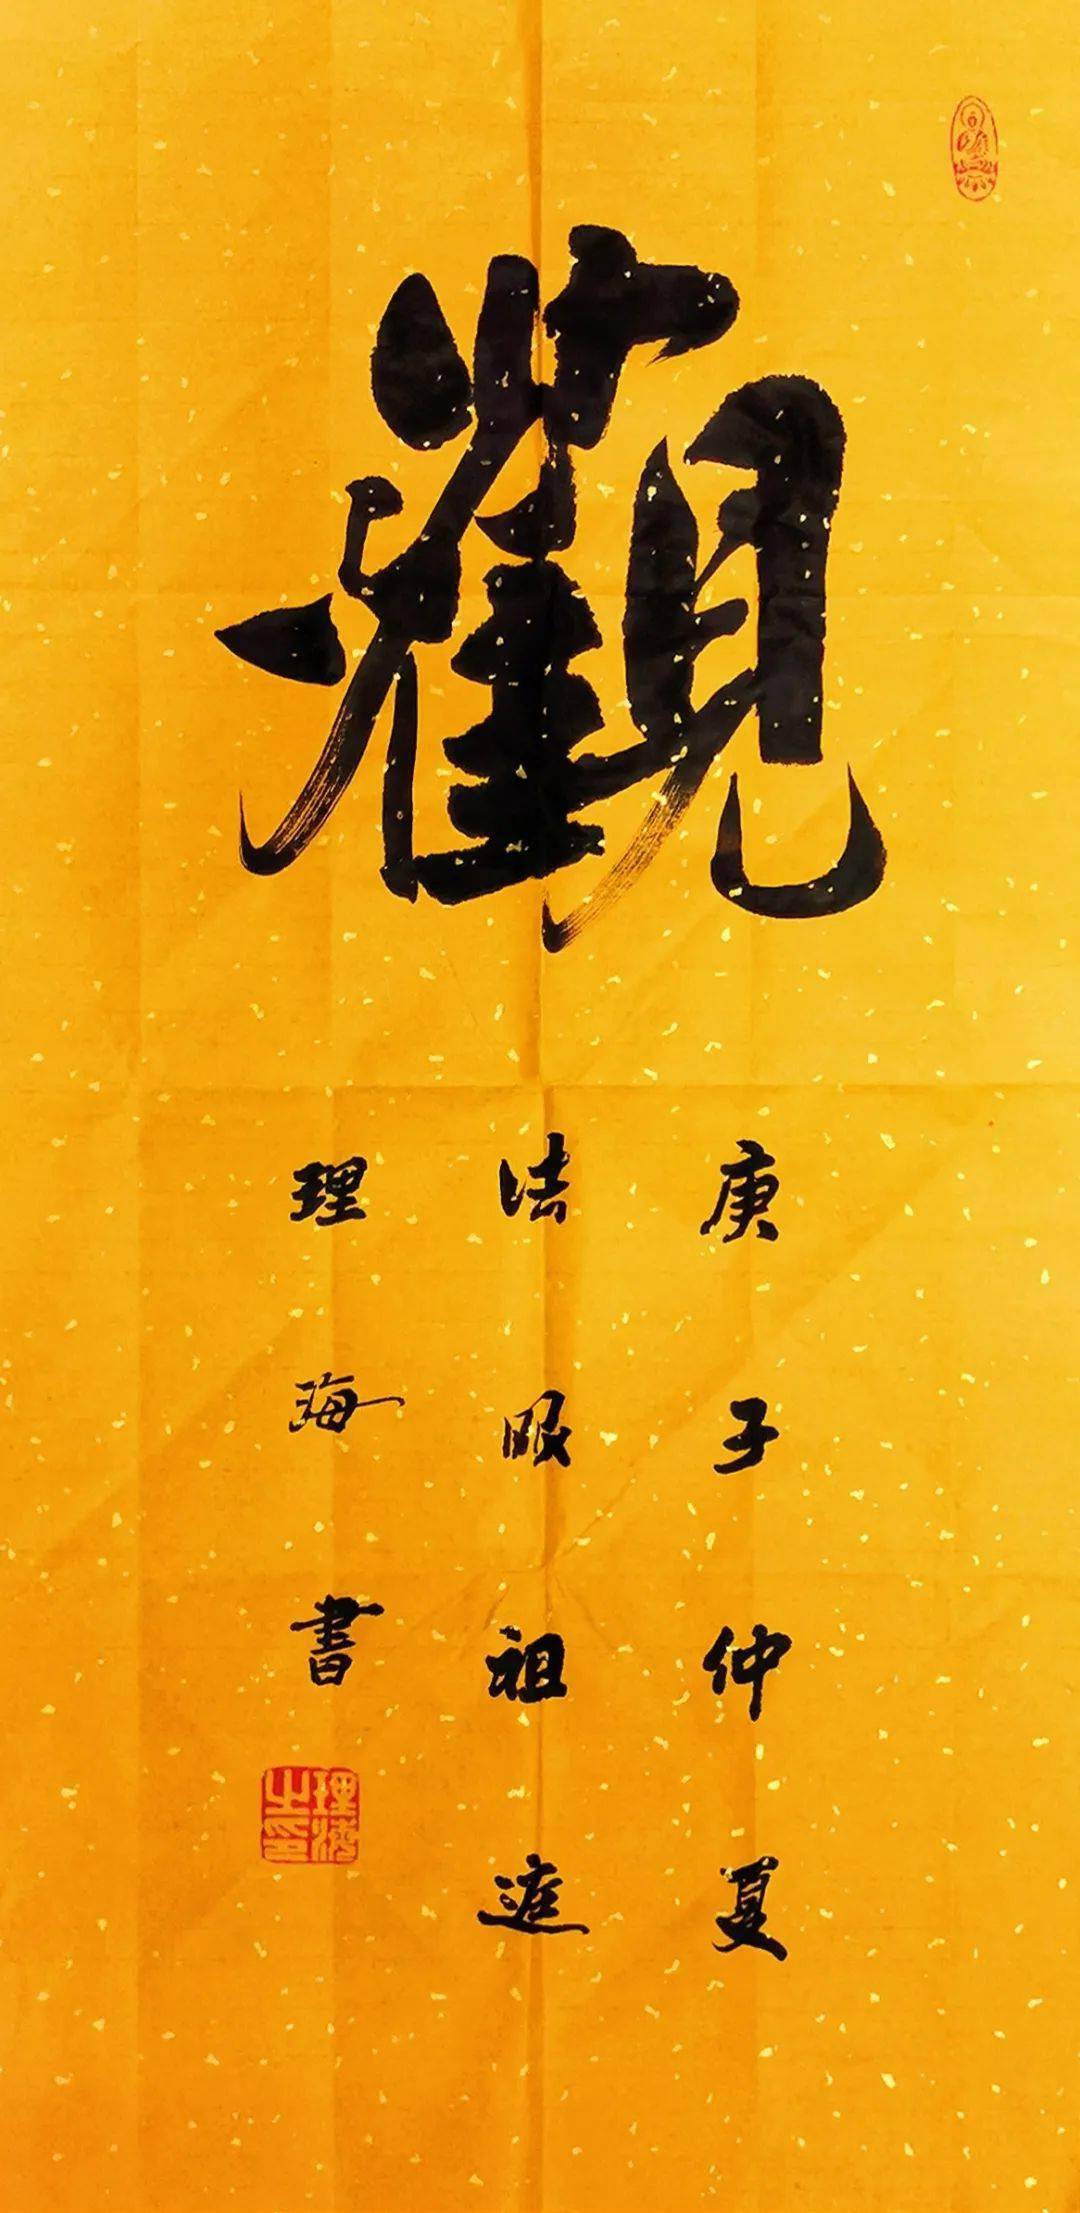 觀
庚子仲夏
法眼祖庭
理海書
理海之印